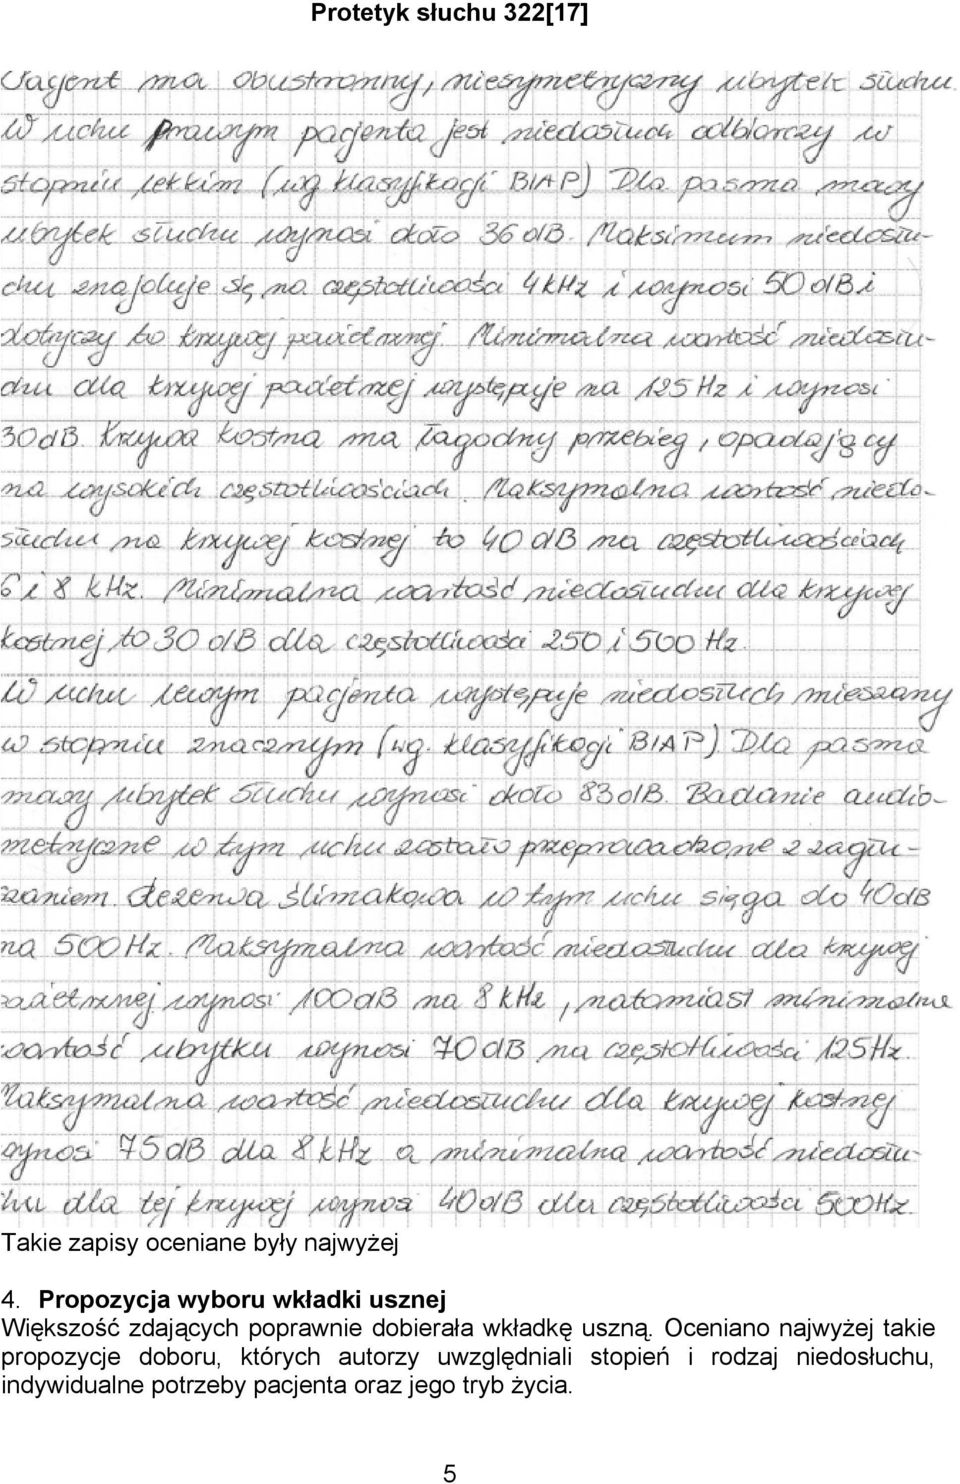 Protetyk słuchu 322[17]
Pacjent ma obustronny, niesymetryczny ubytek słuchu.
W uchu prawym pacjenta jest niedosłuch odbiorczy w
stopniu lekkim (wg klasyfikacji BIAP) Dla pasma mowy
ubytek słuchu wynosi około 36 dB. Maksimum niedosłu-
chu znajduje się na częstotliwości 4kHz i wynosi 50 dB i
dotyczy to krzywej powietrznej. Minimalna wartość niedosłu-
chu dla krzywej powietrznej występuje na 125 Hz i wynosi
30dB. Krzywa kostna ma łagodny przebieg, opadający
na wysokich częstotliwościach. Maksymalna wartość niedo-
słuchu na krzywej kostnej to 40 dB na częstotliwościach
6 i 8 kHz. Minimalna wartość niedosłuchu dla krzywej
kostnej to 30 dB dla częstotliwości 250 i 500 Hz.
W uchu lewym pacjenta występuje niedosłuch mieszany
w stopniu znacznym (wg. klasyfikacji BIAP). Dla pasma
mowy ubytek słuchu wynosi około 83 dB. Badanie audio-
metryczne w tym uchu zostało przeprowadzone z zagłu-
szaniem. Rezerwa ślimakowa w tym uchu sięga do 40dB
na 500 Hz. Maksymalna wartość niedosłuchu dla krzywej
powietrznej wynosi 100dB na 8 kHz, natomiast minimalna
wartość ubytku wynosi 70 dB na częstotliwości 125Hz.
Maksymalna wartość niedosłuchu dla krzywej kostnej
wynosi 75 dB dla 8 kHz a minimalna wartość niedosłu-
chu dla tej krzywej wynosi 40 dB dla częstotliwości 500Hz.
Takie zapisy oceniane były najwyżej
4. Propozycja wyboru wkładki usznej
Większość zdających poprawnie dobierała wkładkę uszną. Oceniano najwyżej takie
propozycje doboru, których autorzy uwzględniali stopień i rodzaj niedosłuchu,
indywidualne potrzeby pacjenta oraz jego tryb życia.
5